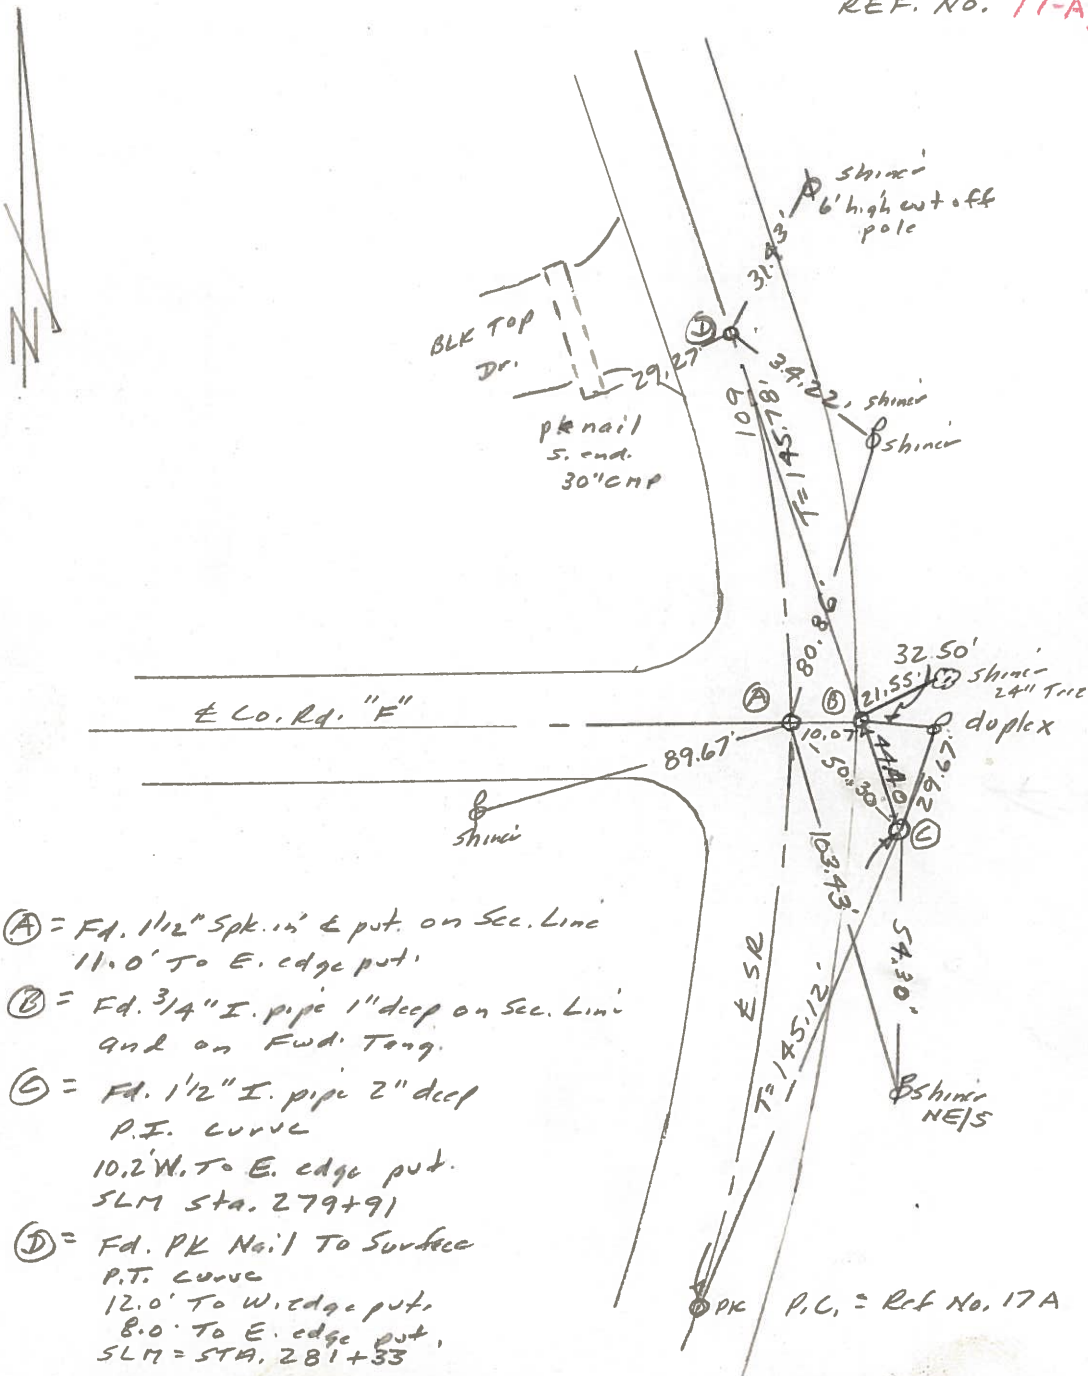 REF. NO. 17-A
N
shiner
6' high cut off
pole
31.43'
D
BLK TOP
Dr.
29.27'
34.22'
shiner
shiner
pk nail
S. end
30" CMP
109
T=145.78'
80.86'
32.50'
21.55'
shiner
24" Tree
duplex
A
B
℄ Co. Rd. "F"
10.07'
89.67'
44.40
50.30
29.67'
shiner
C
103.43'
54.30'
℄ SR
T=145.12'
shiner
NE/S
A = Fd. 1 1/2" Spk. in ℄ pvt. on Sec. Line
11.0' To E. edge pvt.
B = Fd. 3/4" I. pipe 1" deep on Sec. Line
and on Fwd. Tang.
C = Fd. 1 1/2" I. pipe 2" deep
P.I. curve
10.2' W. To E. edge pvt.
SLM Sta. 279+91
D = Fd. PK Nail To Surface
P.T. curve
12.0' To W. edge pvt.
8.0' To E. edge pvt.
SLM = STA. 281+33
PK P.C. = Ref No. 17A